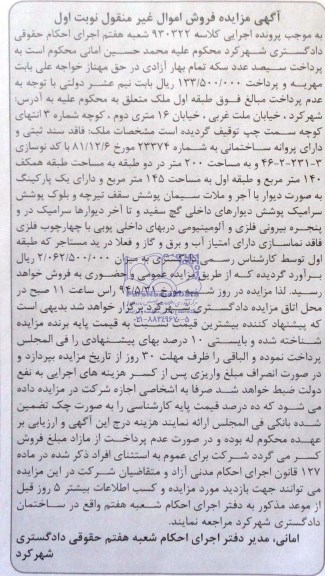 آگهی مزایده فروش اموال غیر منقول نوبت اول
به موجب پرونده اجرایی کلاسه ۹۳۰۳۲۲ شعبه هفتم اجرای احکام حقوقی
دادگستری شهرکرد محکوم علیه محمد حسین امانی محکوم است به
پرداخت سیصد عدد سکه تمام بهار آزادی در حق مهناز خواجه علی بابت
مهریه و پرداخت ۱۳۳/۵۰۰/۰۰۰ ریال بابت نیم عشر دولتی با توجه به
عدم پرداخت مبالغ فوق طبقه اول ملک متعلق به محکوم علیه به آدرس:
شهرکرد ، خیابان ملت غربی ، خیابان ۱۶ متری دوم ، کوچه شماره ۳ انتهای
کوچه سمت چپ توقیف گردیده است مشخصات ملک: فاقد سند ثبتی و
دارای پروانه ساختمانی به شماره ۲۳۳۷۴ مورخ ۸۱/۱۲/۶ با کد نوسازی
۳-۲۳۱-۲-۴۶ و به مساحت ۲۰۰ متر در دو طبقه به مساحت طبقه همکف
۱۴۰ متر مربع و طبقه اول به مساحت ۱۴۵ متر مربع و دارای یک پارکینگ
به صورت دیوار با آجر و ملات سیمان پوشش سقف تیرچه و بلوک پوشش
سرامیک پوشش دیوارهای داخلی گچ سفید و تا آخر دیوارها سرامیک در و
پنجره بیرونی فلزی و آلومینیومی دربهای داخلی پوبی با چهارچوب فلزی
فاقد نماسازی دارای امتیاز آب و برق و گاز و فعلا در ید مستاجر که طبقه
اول توسط کارشناس رسمی دادگستری به میزان ۲/۰۶۲/۵۰۰/۰۰۰ ریال
برآورد گردیده کـه از طریق مزایده عمومی و حضوری به فروش خواهد
رسید. لذا مزایده در روز مورخ ۹۴/۵/۳۱ راس ساعت ۱۱ صبح در
محل اتاق مزایده دادگستری شهرکرد برگزار خواهد شد بدیهی است
که پیشنهاد کننده بیشترین قیمت نسبت به قیمت پایه برنده مزایده
شناخته شده و بایستی ۱۰ درصد بهای پیشنهادی را فی المجلس
پرداخت نموده و الباقی را ظرف مهلت ۳۰ روز از تاریخ مزایده بپردازد و
در صورت انصراف مبلغ واریزی پس از کسر هزینه های اجرایی به نفع
دولت ضبط خواهد شد صرفا به اشخاصی اجازه شرکت در مزایده داده
می شود که ده درصد قیمت پایه کارشناسی را به صورت چک تضمین
شده بانکی فی المجلس ارائه نمایند هزینه درج این آگهی و ارزیابی بر
عهده محکوم له بوده و در صورت عدم پرداخت از مازاد مبلغ فروش
کسر می گردد شرکت برای عموم به استثنای افراد ذکر شده در ماده
۱۲۷ قانون اجرای احکام مدنی آزاد و متقاضیان شرکت در این مزایده
می توانند جهت بازدید مورد مزایده و کسب اطلاعات بیشتر ۵ روز قبل
از موعد مذکور به دفتر اجرای احکام شعبه هفتم واقع در ساختمان
دادگستری شهرکرد مراجعه نمایند.
امانی، مدیر دفتر اجرای احکام شعبه هفتم حقوقی دادگستری
شهرکرد